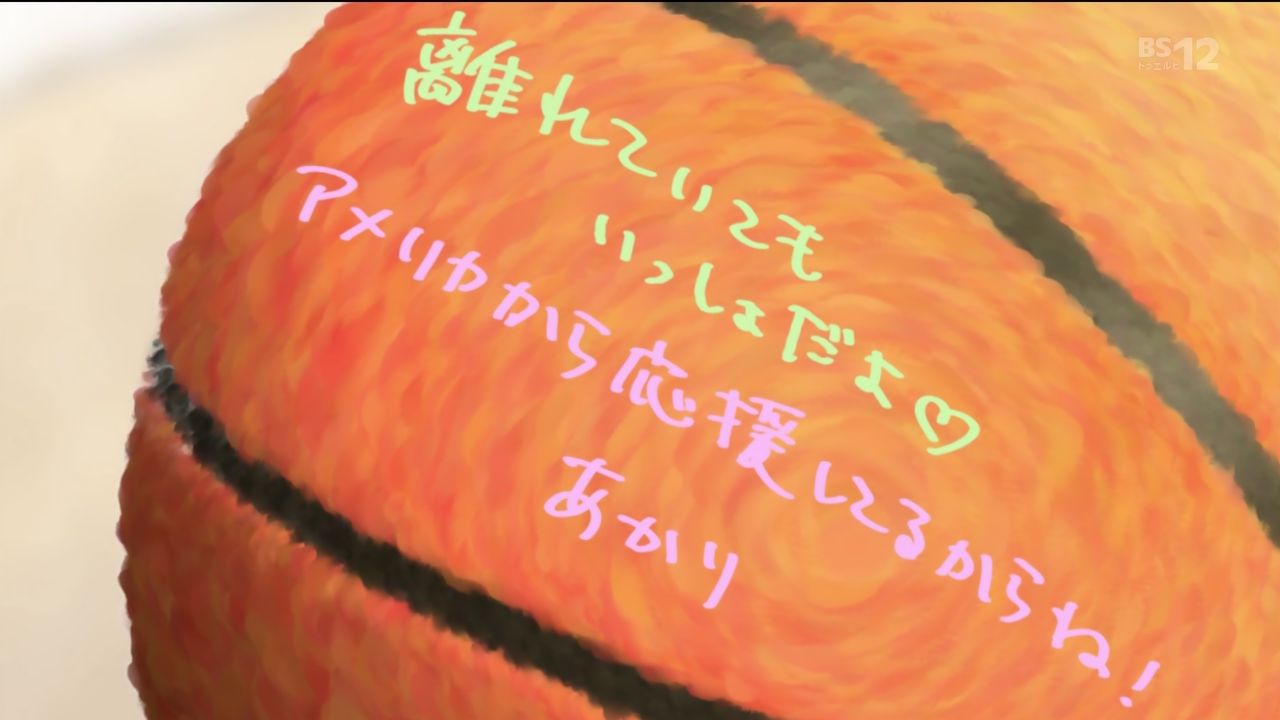 離れていても
いっしょだよ♡
アメリカから応援してるからね!
あかり
BS12
トゥエルビ